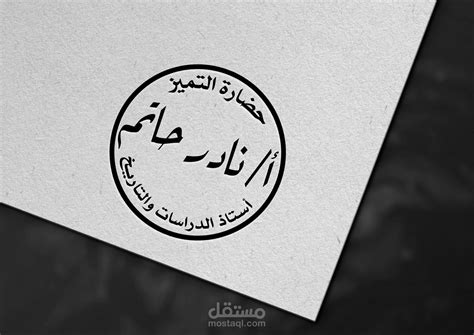 حضارة التميز
أ/ نادر حاتم
أستاذ الدراسات والتاريخ
مستقل
mostaql.com